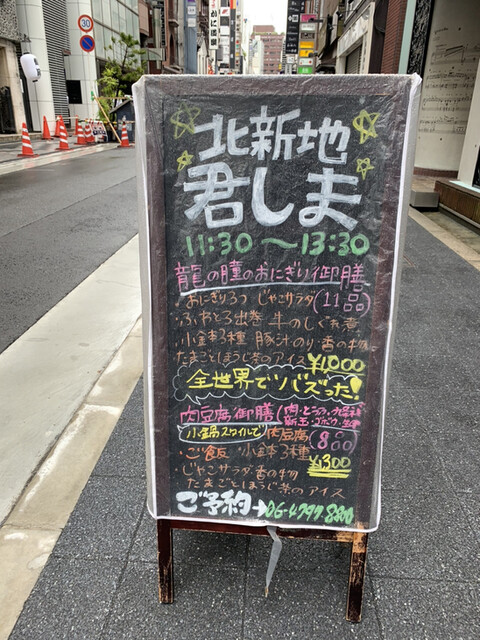 北新地
君しま
11:30〜13:30
龍の瞳のおにぎり御膳
・おにぎり3つ じゃこサラダ(11品)
・ふわとろ出巻 牛のしぐれ煮
小鉢3種 豚汁 のり・香の物
たまごとほうじ茶のアイス ¥1,000
全世界でソバズった!
肉豆腐御膳(肉・とうふ・九条ネギ
新玉・ゴボウ・生麩
小鍋スタイルで 肉豆腐(8品)
・ご飯 ・小鉢3種 ¥1300
・じゃこサラダ・香の物
たまごとほうじ茶のアイス
ご予約→06-4797-8800
30
かに道楽